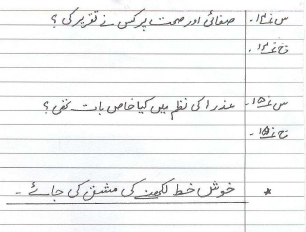 س نمبر ۱۴۔ صفائی اور صحت پر کس نے تقریر کی ؟
ج نمبر ۱۴۔
س نمبر ۱۵۔ عذرا کی نظم میں کیا خاص بات تھی ؟
ج نمبر ۱۵۔
* خوش خط لکھنے کی مشق کی جائے ۔